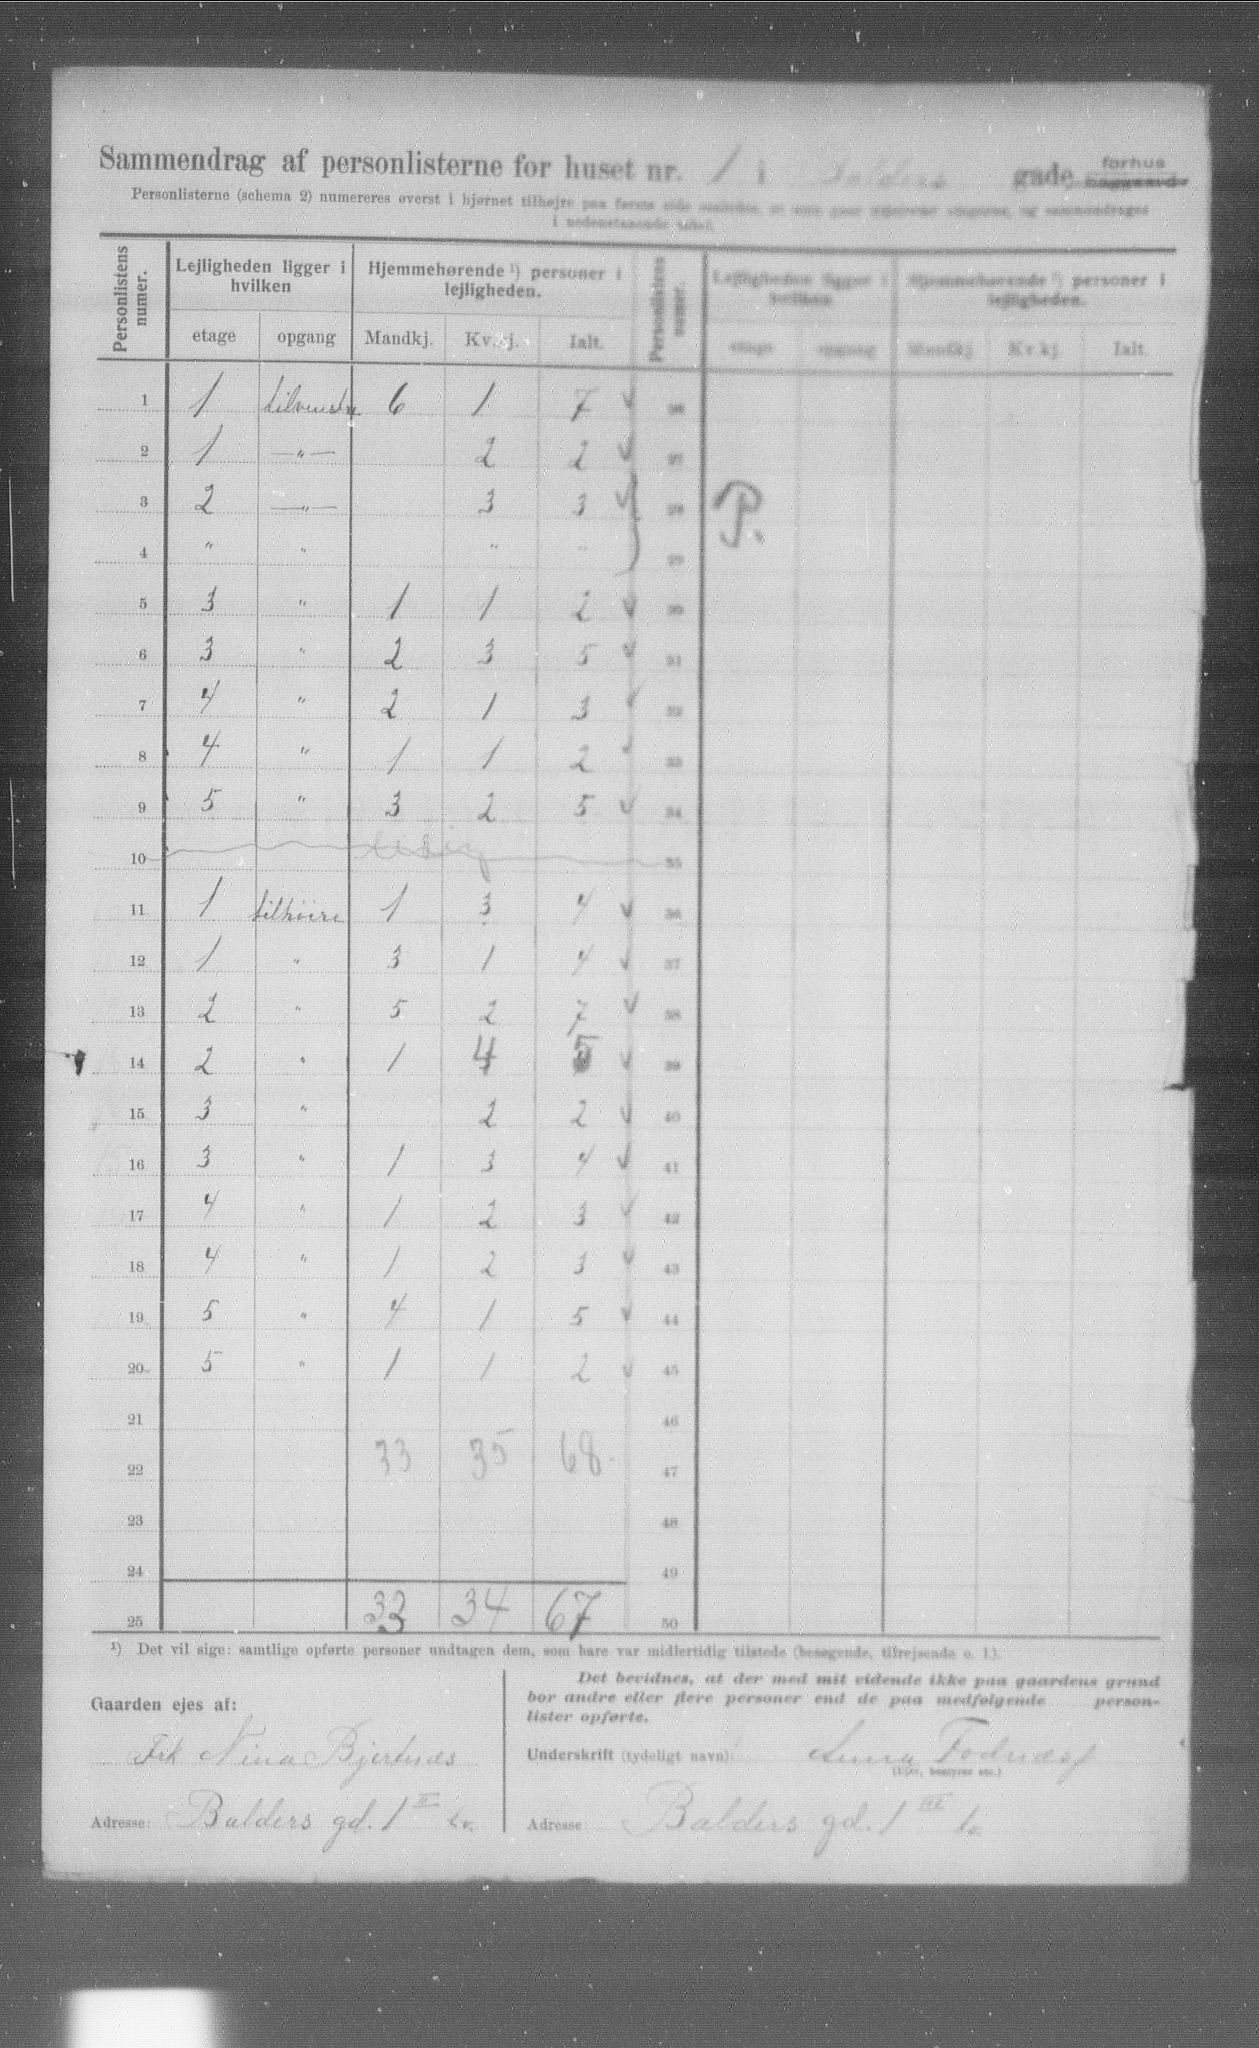 Sammendrag af personlisterne for huset nr. 1 i Balders gade forhus baggaard
Personlisterne (schema 2) numereres øverst i hjørnet tilhøjre paa første side og sammendrages
i nedenstaaende tabel.
Personlistens numer. Lejligheden ligger i hvilken Hjemmehørende ¹) personer i lejligheden. Personlistens numer. Lejligheden ligger i hvilken Hjemmehørende ¹) personer i lejligheden.
etage opgang Mandkj. Kv.kj. Ialt. etage opgang Mandkj Kv.kj Ialt.
1 1 tilvenstre 6 1 7 ✓ 26
2 1 —„— 2 2 ✓ 27
3 2 —„— 3 3 ✓ 28 P.
4 " " " " 29
5 3 " 1 1 2 ✓ 30
6 3 " 2 3 5 ✓ 31
7 4 " 2 1 3 ✓ 32
8 4 " 1 1 2 ✓ 33
9 5 " 3 2 5 ✓ 34
10 ledig 35
11 1 tilhöire 1 3 4 ✓ 36
12 1 " 3 1 4 ✓ 37
13 2 " 5 2 7 ✓ 38
14 2 " 1 4 5 ✓ 39
15 3 " 2 2 ✓ 40
16 3 " 1 3 4 ✓ 41
17 4 " 1 2 3 ✓ 42
18 4 " 1 2 3 ✓ 43
19 5 " 4 1 5 ✓ 44
20 5 " 1 1 2 ✓ 45
21 46
22 33 35 68. 47
23 48
24 49
25 33 34 67 50
¹) Det vil sige: samtlige opførte personer undtagen dem, som bare var midlertidig tilstede (besøgende, tilrejsende o. l.).
Gaarden ejes af:
Frk Nina Bjertnæs
Adresse: Balders gd. 1 II tv.
Det bevidnes, at der med mit vidende ikke paa gaardens grund
bor andre eller flere personer end de paa medfølgende person-
lister opførte.
Underskrift (tydeligt navn): Anna Fodnæs
(Ejer, bestyrer etc.)
Adresse: Balders gd. 1 III tv.